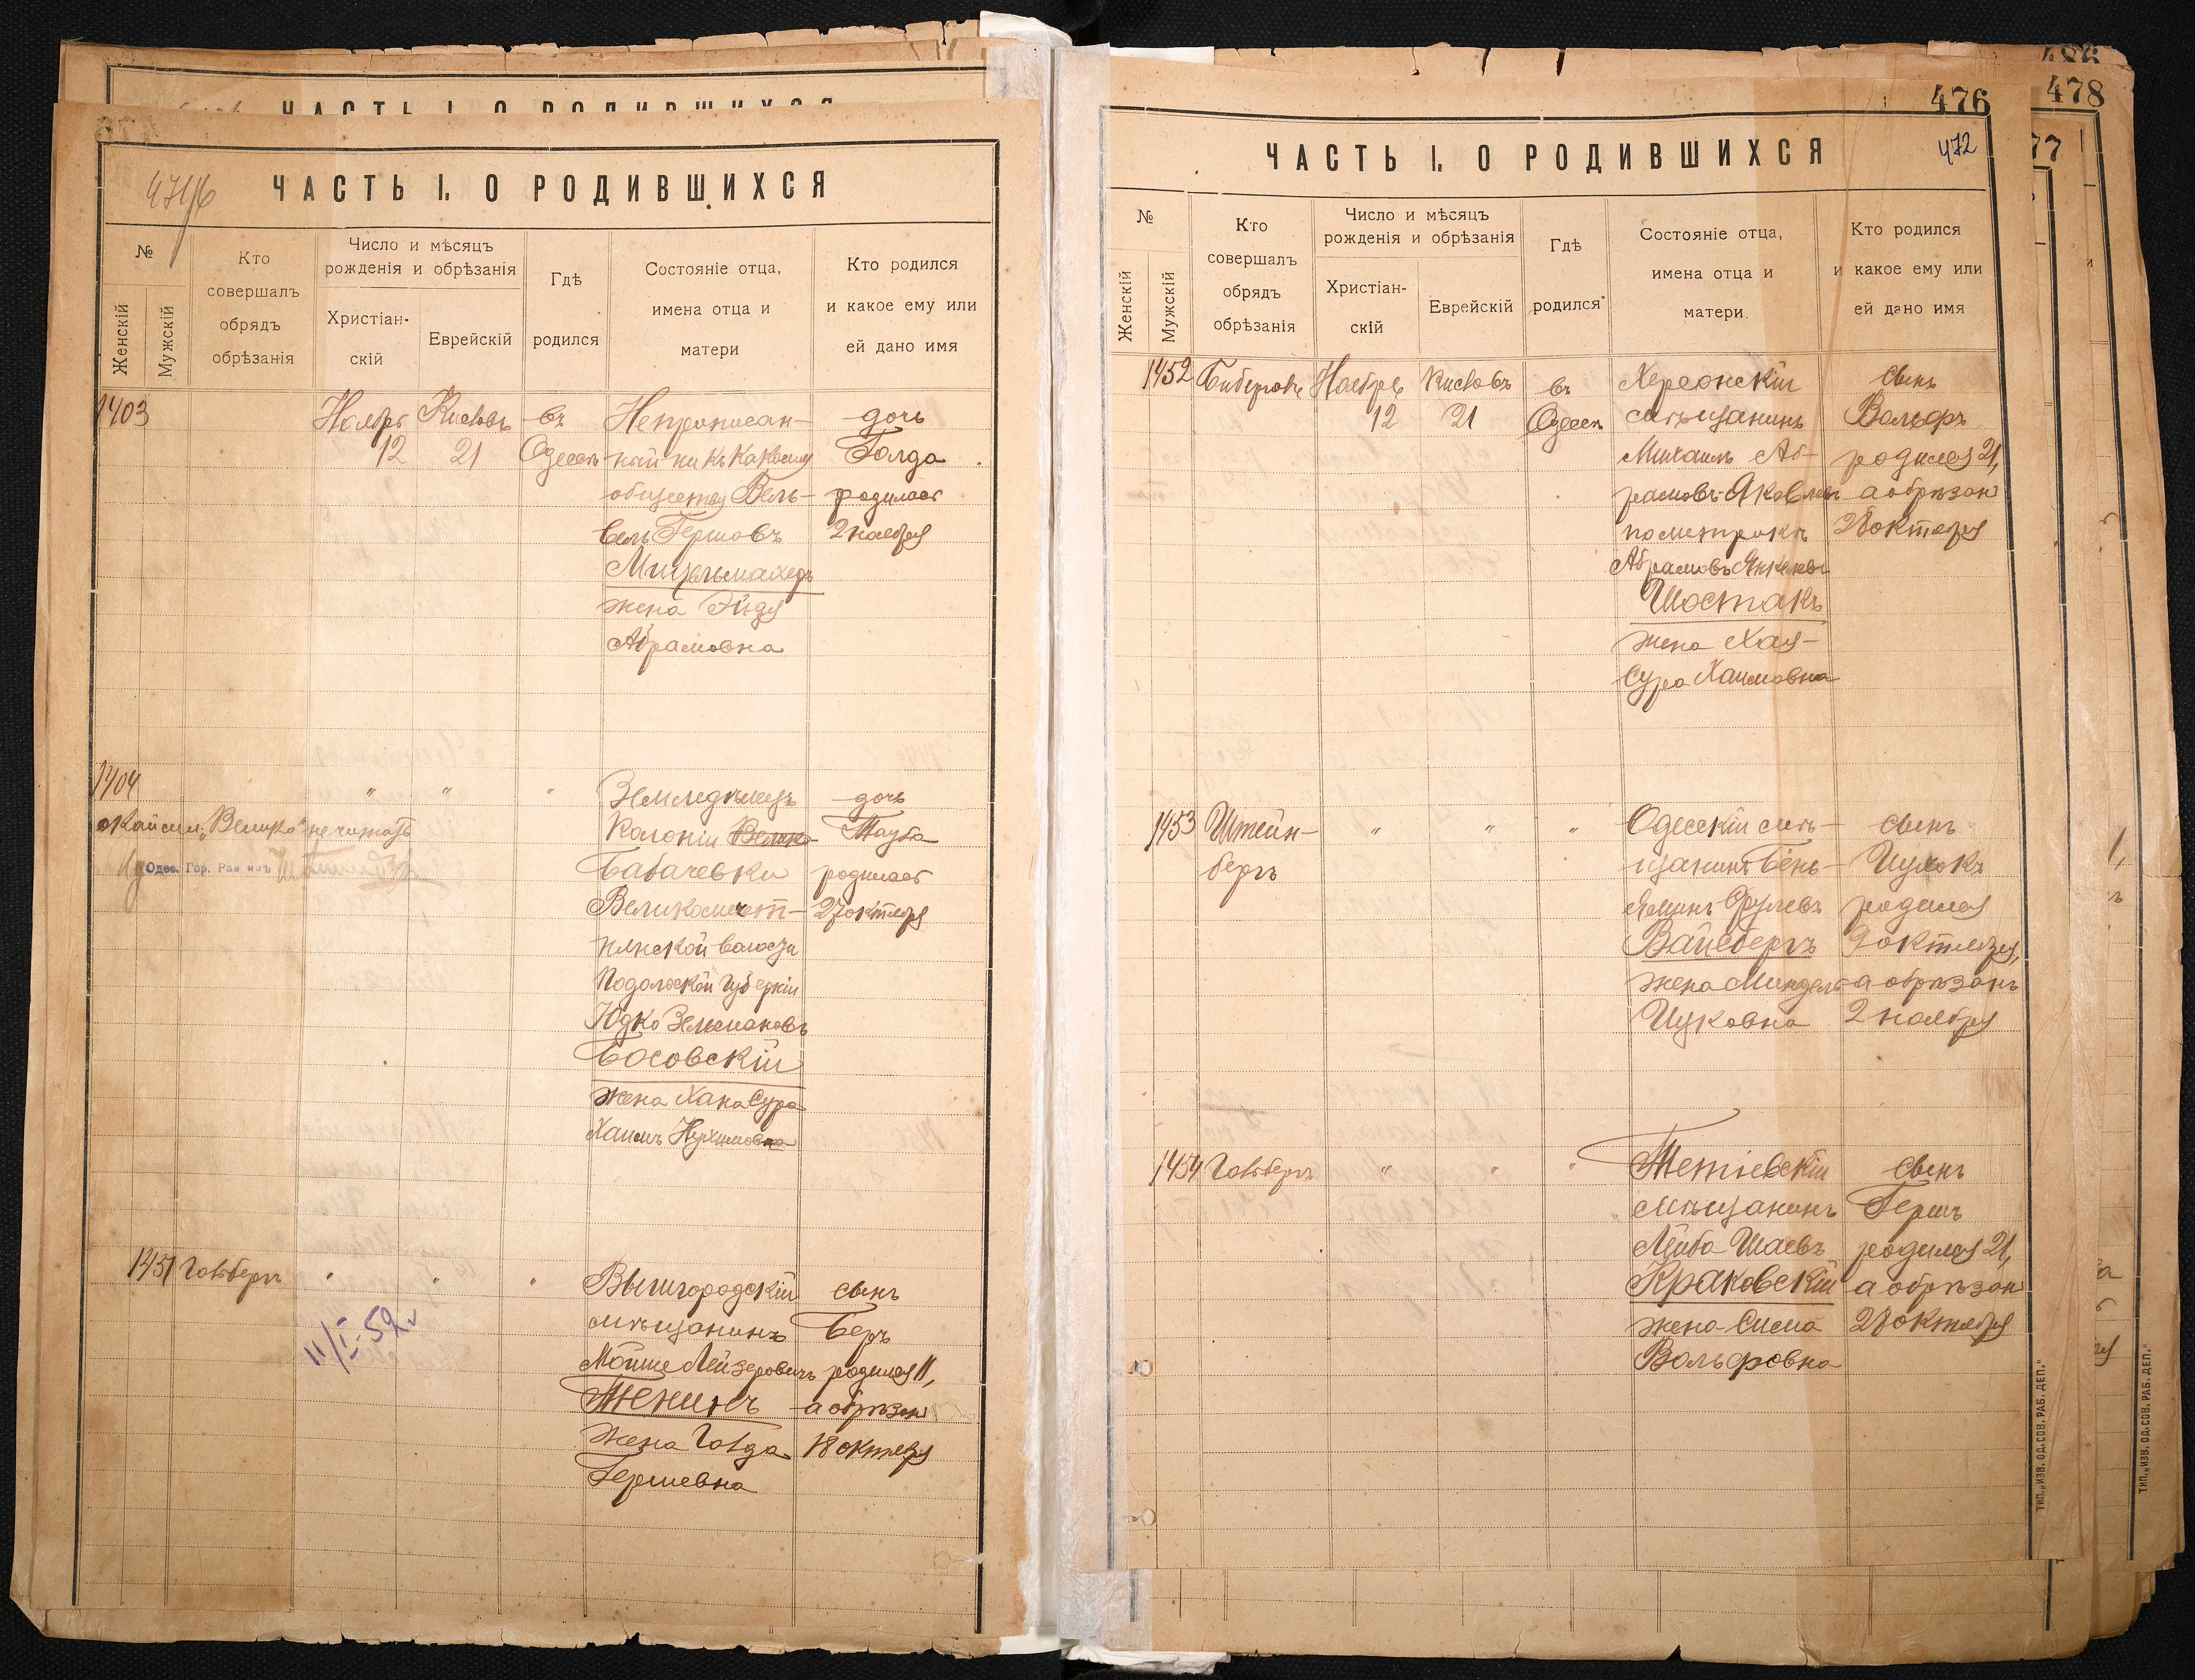 ЧАСТЬ I. О РОДИВШИХСЯ
ЧАСТЬ I. О РОДИВШИХСЯ
№
Женскій
Мужскій
Кто
совершалъ
обрядъ
обрѣзанія
Число и мѣсяцъ
рожденія и обрѣзанія
Христіан-
скій
Еврейскій
Гдѣ
родился
Состояніе отца,
имена отца и
матери
Кто родился
и какое ему или
ей дано имя
1403
Ноябрь
12
Кислевъ
21
въ
Одессѣ
Неприписан-
ный ни къ какому
обществу Вель-
вель Гершовъ
Мительмахеръ
жена Эйдя
Абрамовна
дочь
Голда
родилась
2 ноября
1404
" " "
Окайсми. „Велико" не читать
Одес. Гор. Раввинъ
Земледѣлецъ
Колоніи Велико-
Бабачевки
Подольской Губерніи
Юдко Зельмановъ
Босовскій
жена Хана Сура
Хаимъ Нухимовна
дочь
Тауба
родилась
27 октября
1451
Гольбергъ
" " "
11/I-52
Вышгородскій
мѣщанинъ
Мойше Лейзеровичъ
Тенинъ
жена Голда
Гершевна
сынъ
Беръ
родился 11,
а обрѣзан
18 октября
476
472
ЧАСТЬ I. О РОДИВШИХСЯ
№
Женскій
Мужскій
Кто
совершалъ
обрядъ
обрѣзанія
Число и мѣсяцъ
рожденія и обрѣзанія
Христіан-
скій
Еврейскій
Гдѣ
родился
Состояніе отца,
имена отца и
матери.
Кто родился
и какое ему или
ей дано имя
1452
Ноябрь
12
Кислевъ
21
въ
Одессѣ
Херсонскій
мѣщанинъ
Михаилъ Аб-
рамовъ-Яковлевъ
по метрикѣ
Абрамовъ Янкелевъ
Шостакъ
жена Хая-
Сура Хаимовна
сынъ
Вольфъ
родился 21,
а обрѣзан
28 октября
1453
Штейн-
бергъ
" " "
Одесскій мѣ-
щанинъ Бень-
яминъ Срулевъ
Вайсбергъ
жена Миндель
Ицковна
сынъ
Ицхокъ
родился
9 октября,
а обрѣзанъ
2 ноября
1454
Гольбергъ
" " "
Тетіевскій
мѣщанинъ
Лейба Шаевъ
Краковскій
жена Сима
Вольфовна
сынъ
Гершъ
родился 21,
а обрѣзан
28 октября
ТИП. „ИЗВ. ОД. СОВ. РАБ. ДЕП."
478
77
ТИП. „ИЗВ. ОД. СОВ. РАБ. ДЕП."